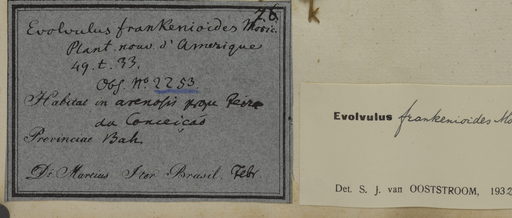 76.
Evolvulus frankenioides Moric.
Plant. nouv. d'Amerique
49. t. 33.
Obs. No. 2253
Habitat in arenosis prope Feira
da Conceição
Provinciae Bah.
Dr. Martius Iter Brasil. Febr
Evolvulus frankenioides Mo
Det. S. J. van OOSTSTROOM, 1932